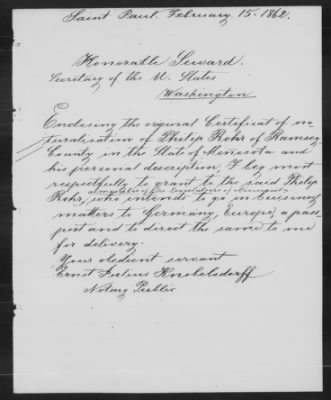 Saint Paul. February. 15. 1862.
Honorable Seward.
Secretary of the U. States
Washington
Enclosing the original Certificat of na
turalisation of Philip Rohr of Ramsey
County in the State of Minesota and
his personal description, I beg most
respectfully to grant to the said Philip
a member of the Legislature of Minnesota
Rohr, who intends to go in buissines
matters to Germany, Europe, a pass
port and to direct the same to me
for delivery.
Your obedient servant
Ernst Julius Knobelsdorff
Notary Public